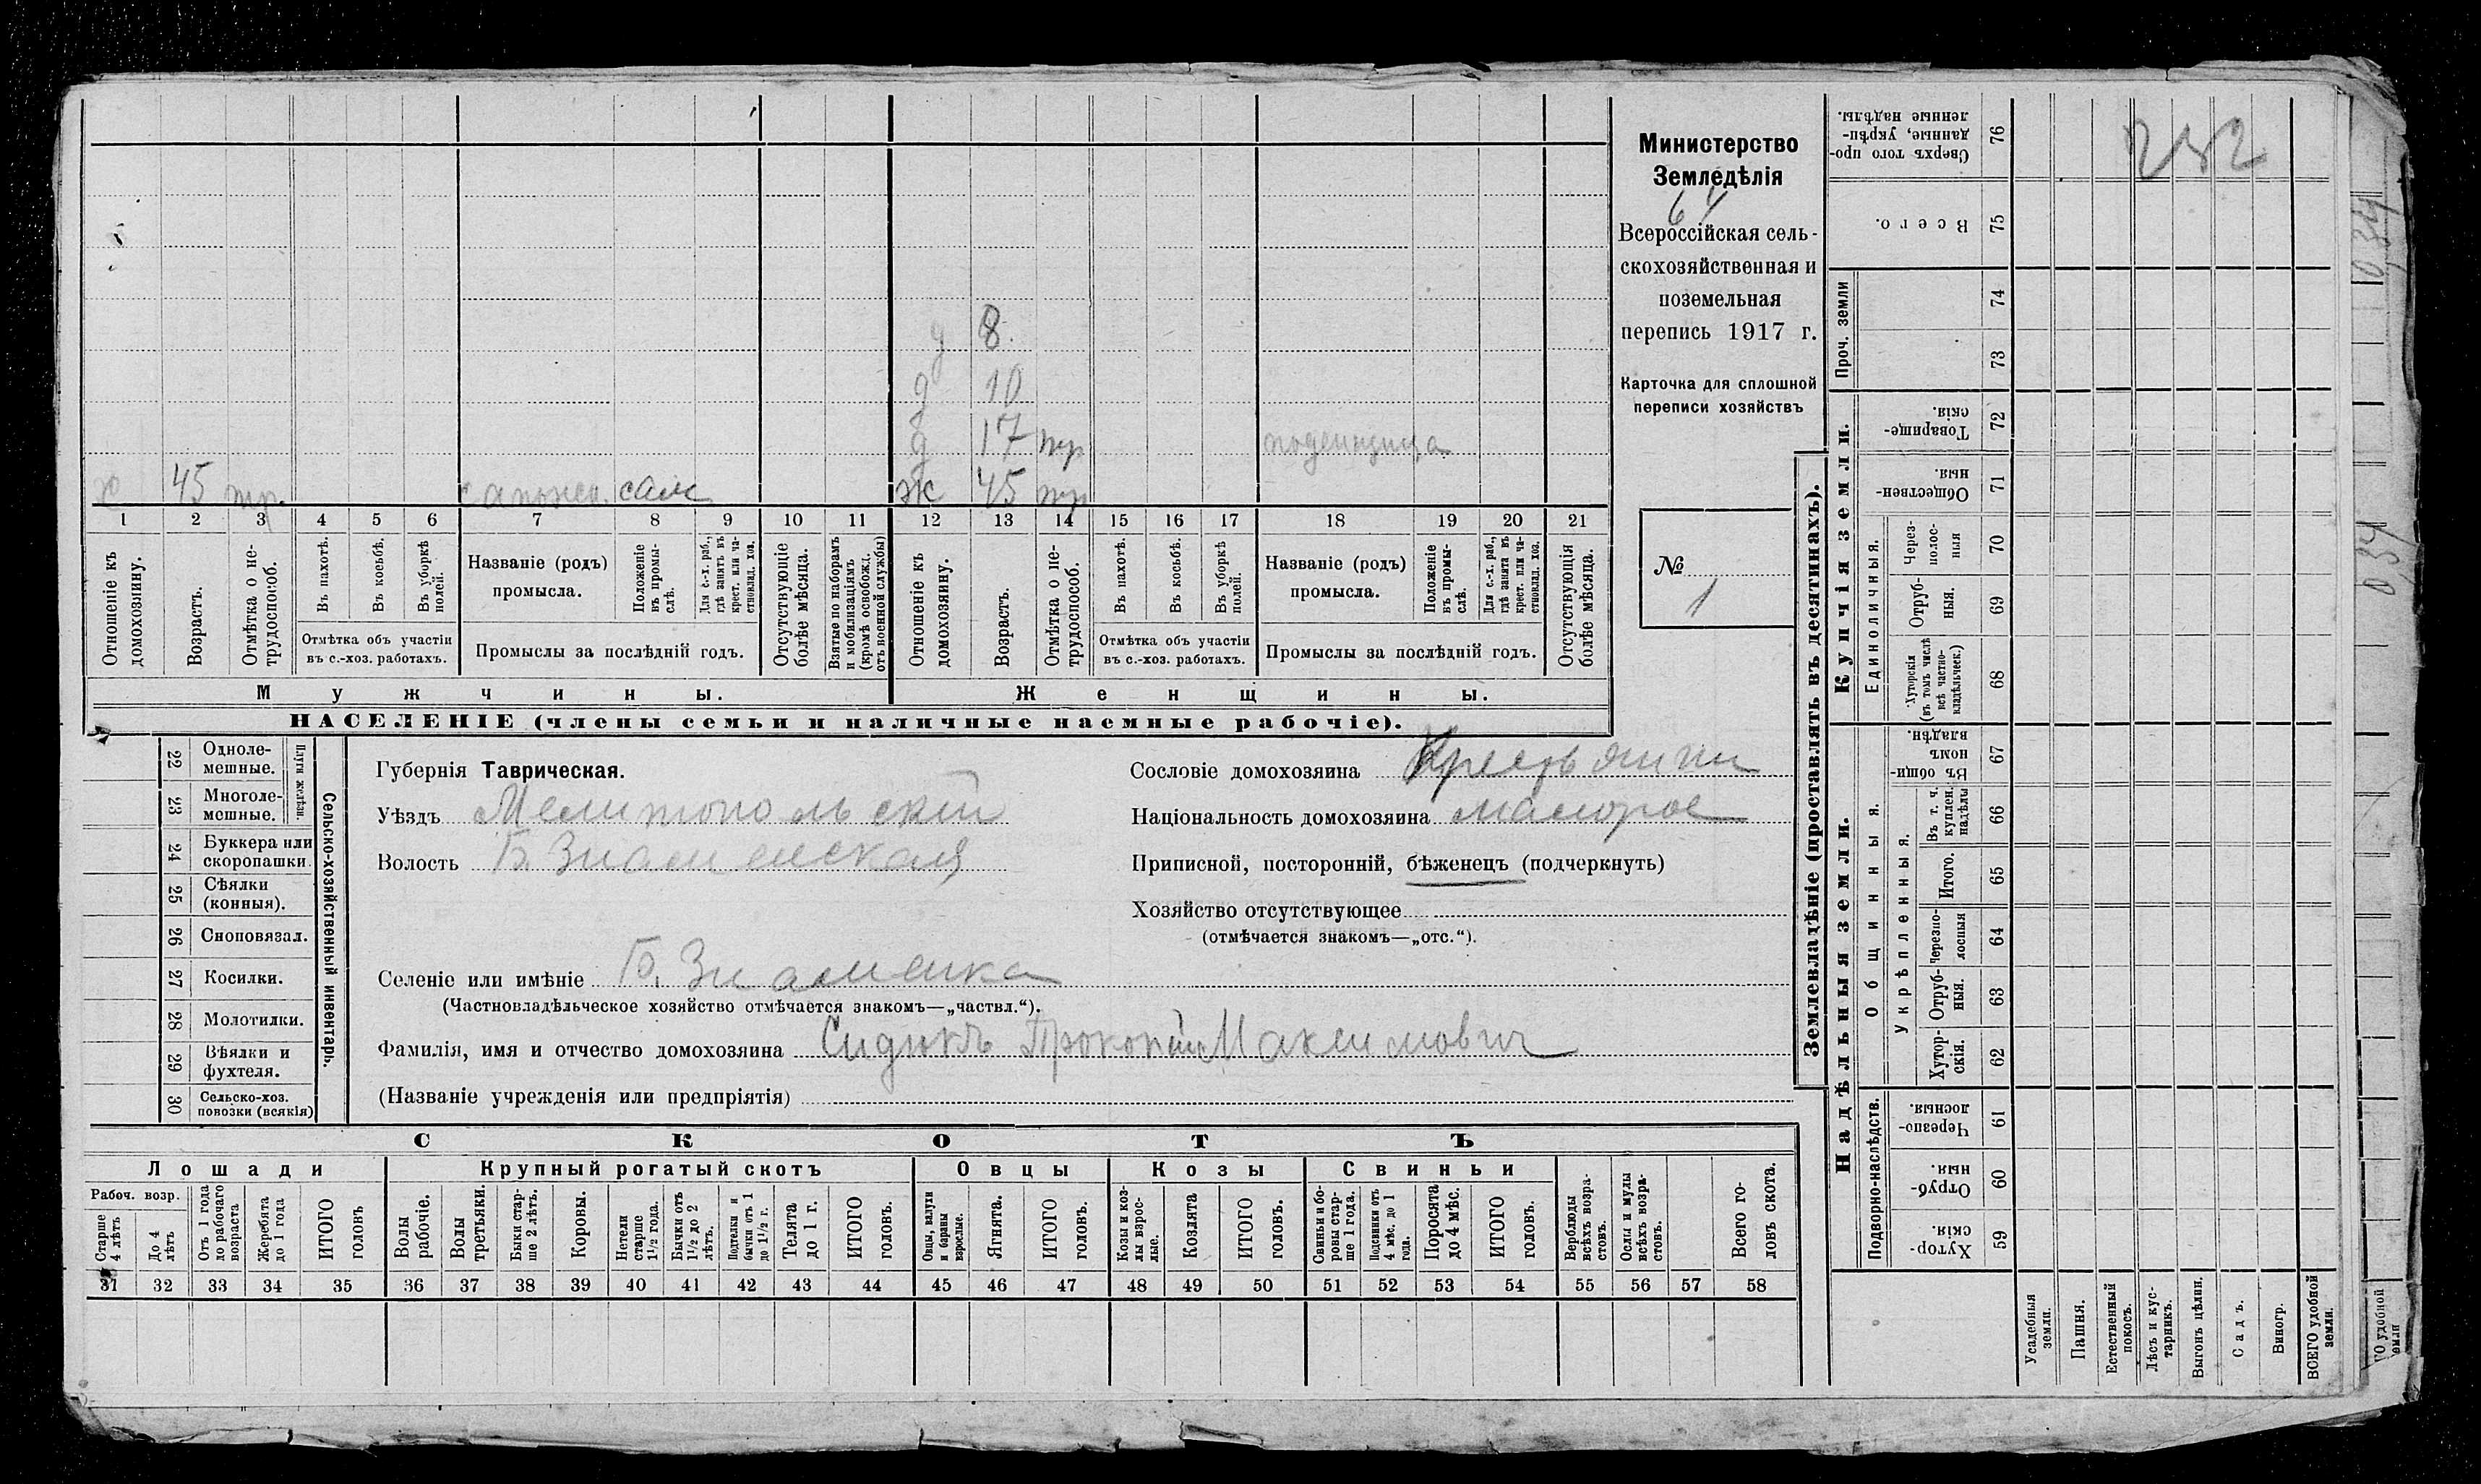 д 8.
д 10
д 17 тр подёнщица
х 45 тр. сапожн. сам ж 45 тр
1 2 3 4 5 6 7 8 9 10 11 12 13 14 15 16 17 18 19 20 21
Отношеніе къ домохозяину.
Возрастъ.
Отмѣтка о не-трудоспособ.
Въ пахотѣ.
Въ косьбѣ.
Въ уборкѣ полей.
Отмѣтка объ участіи
въ с.-хоз. работахъ.
Названіе (родъ)
промысла.
Положеніе въ промы-слѣ.
Для с.-х. раб., гдѣ занятъ въ крест. или ча-стновлад. хоз.
Промыслы за послѣдній годъ.
Отсутствующіе болѣе мѣсяца.
Взятые по наборамъ и мобилизаціямъ (кромѣ освобожд. отъ военной службы)
Отношеніе къ домохозяину.
Возрастъ.
Отмѣтка о не-трудоспособ.
Въ пахотѣ.
Въ косьбѣ.
Въ уборкѣ полей.
Отмѣтка объ участіи
въ с.-хоз. работахъ.
Названіе (родъ)
промысла.
Положеніе въ промы-слѣ.
Для с.-х. раб., гдѣ занята въ крест. или ча-стновлад. хоз.
Промыслы за послѣдній годъ.
Отсутствующія болѣе мѣсяца.
Мужчины. Женщины.
НАСЕЛЕНІЕ (члены семьи и наличные наемные рабочіе).
Министерство
Земледѣлія
64
Всероссійская сель-
скохозяйственная и
поземельная
перепись 1917 г.
Карточка для сплошной
переписи хозяйствъ
№
1
22 Одноле-мешные.
23 Многоле-мешные.
Плуги желѣзн.
24 Буккера или скоропашки.
25 Сѣялки (конныя).
26 Сноповязал.
27 Косилки.
28 Молотилки.
29 Вѣялки и фухтеля.
30 Сельско-хоз. повозки (всякія)
Сельско-хозяйственный инвентарь.
Губернія Таврическая.
Уѣздъ Мелитопольскій
Волость Б. Знаменская
Сословіе домохозяина Крестьянин
Національность домохозяина малорос
Приписной, посторонній, бѣженецъ (подчеркнуть)
Хозяйство отсутствующее
(отмѣчается знакомъ—„отс.“).
Селеніе или имѣніе Б. Знаменка
(Частновладѣльческое хозяйство отмѣчается знакомъ—„частвл.“).
Фамилія, имя и отчество домохозяина Сидюкъ Прокопій Максимович
(Названіе учрежденія или предпріятія)
СКОТЪ
Лошади Крупный рогатый скотъ Овцы Козы Свиньи
Рабоч. возр.
Старше 4 лѣтъ
До 4 лѣтъ
Отъ 1 года до рабочаго возраста
Жеребята до 1 года
ИТОГО головъ
Волы рабочіе.
Волы третьяки.
Быки стар-ше 2 лѣтъ.
Коровы.
Нетели старше 1½ года.
Бычки отъ 1½ до 2 лѣтъ.
Подтелки и бычки отъ 1 до 1½ г.
Телята до 1 г.
ИТОГО головъ.
Овцы, валухи и бараны взрослые.
Ягнята.
ИТОГО головъ.
Козы и коз-лы взрос-лые.
Козлята
ИТОГО головъ.
Свиньи и бо-ровы стар-ше 1 года.
Подсвинки отъ 4 мѣс. до 1 года.
Поросята до 4 мѣс.
ИТОГО головъ.
Верблюды всѣхъ возра-стовъ.
Ослы и мулы всѣхъ возра-стовъ.
Всего го-ловъ скота.
31 32 33 34 35 36 37 38 39 40 41 42 43 44 45 46 47 48 49 50 51 52 53 54 55 56 57 58
Землевладѣніе (проставлять въ десятинахъ).
Купчія земли.
Надѣльныя земли.
Сверхъ того про-данные, укрѣп-ленные надѣлы. 76
252
Всего. 75
Проч. земли 74
73
Товарище-скія. 72
Обществен-ныя. 71
Единоличныя.
Через-полос-ныя 70
Отруб-ныя. 69
Хуторскія (въ томъ числѣ всѣ частно-владѣльческ.) 68
Общинныя.
Въ общи-номъ владѣн. 67
Укрѣпленныя.
Въ т. ч. куплен. надѣлы 66
Итого. 65
Черезпо-лосныя 64
Отруб-ныя. 63
Хутор-скія. 62
Подворно-наслѣдств.
Черезпо-лосныя. 61
Отруб-ныя. 60
Хутор-скія. 59
Усадебныя земли.
Пашня.
Естественный покосъ.
Лѣсъ и кус-тарникъ.
Выгонъ цѣлин.
Садъ.
Виногр.
ВСЕГО удобной земли.
ГО удобной
земли
1034